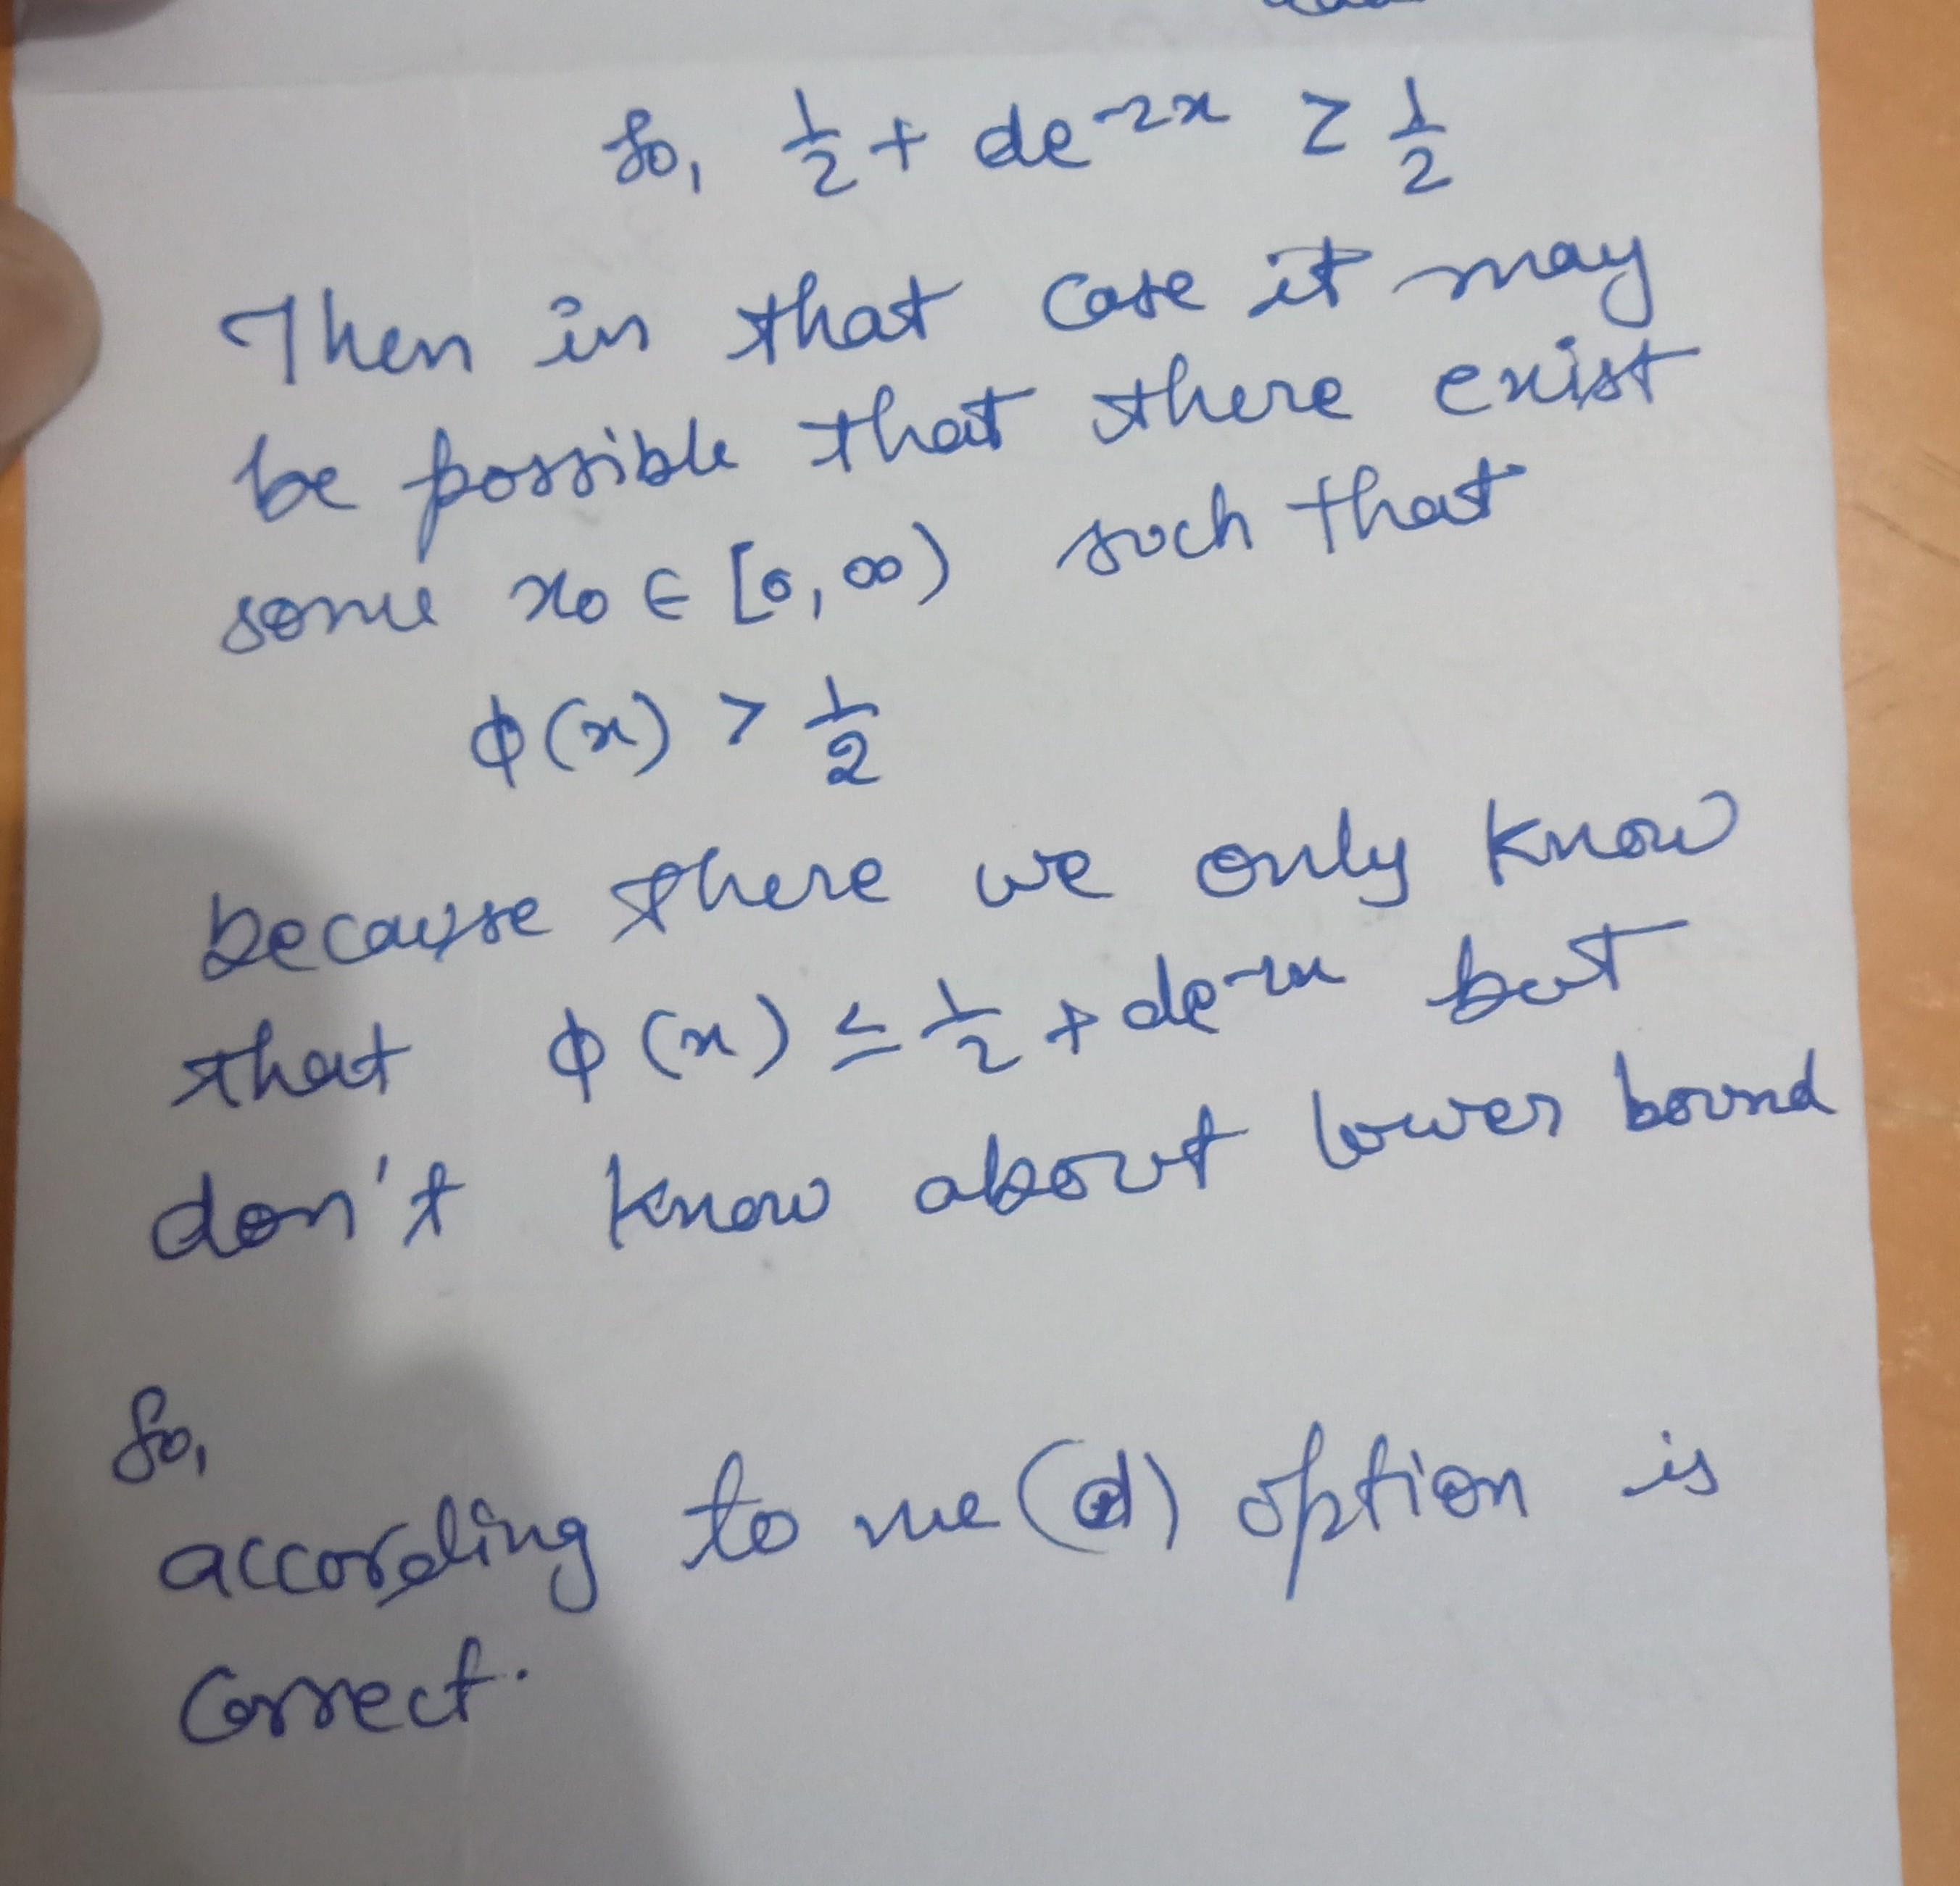 So, 1/2 + de^-2x ≥ 1/2
Then in that case it may
be possible that there exist
some x0 ∈ [0, ∞) such that
ϕ(x) > 1/2
because there we only know
that ϕ(x) ≤ 1/2 + de^-2x but
don't know about lower bound
So,
according to me (d) option is
Correct.